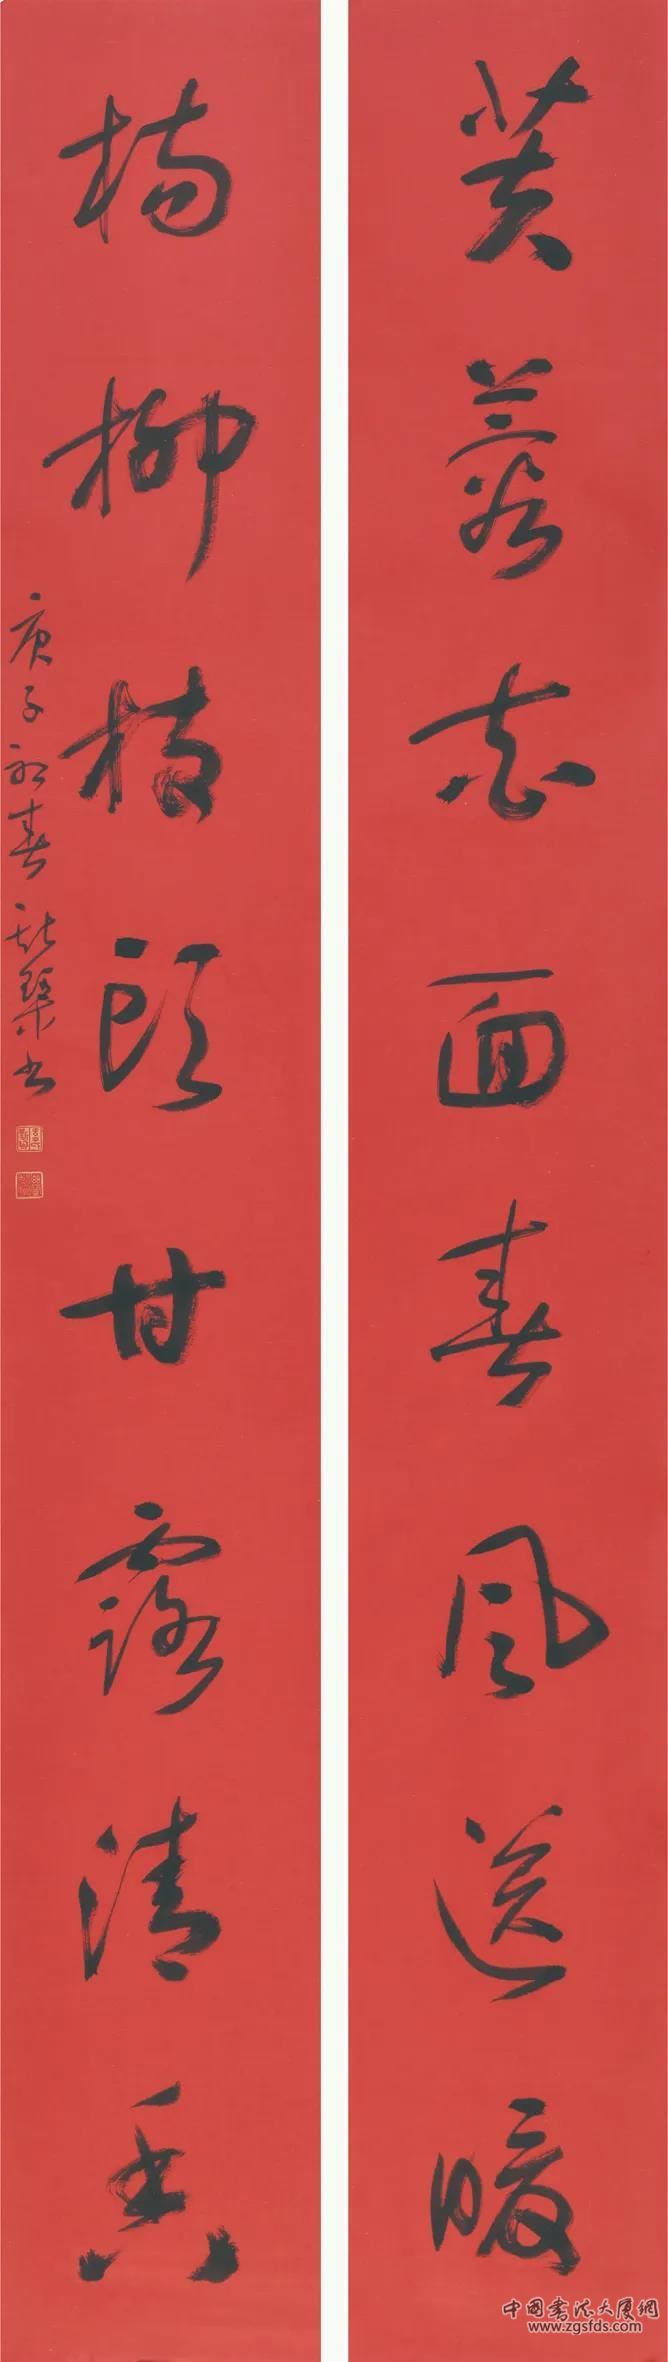 芙蓉花面春風送暖
楊柳枝頭甘露清香
庚子初春 書
中國書法大廈網
www.zgsfds.com